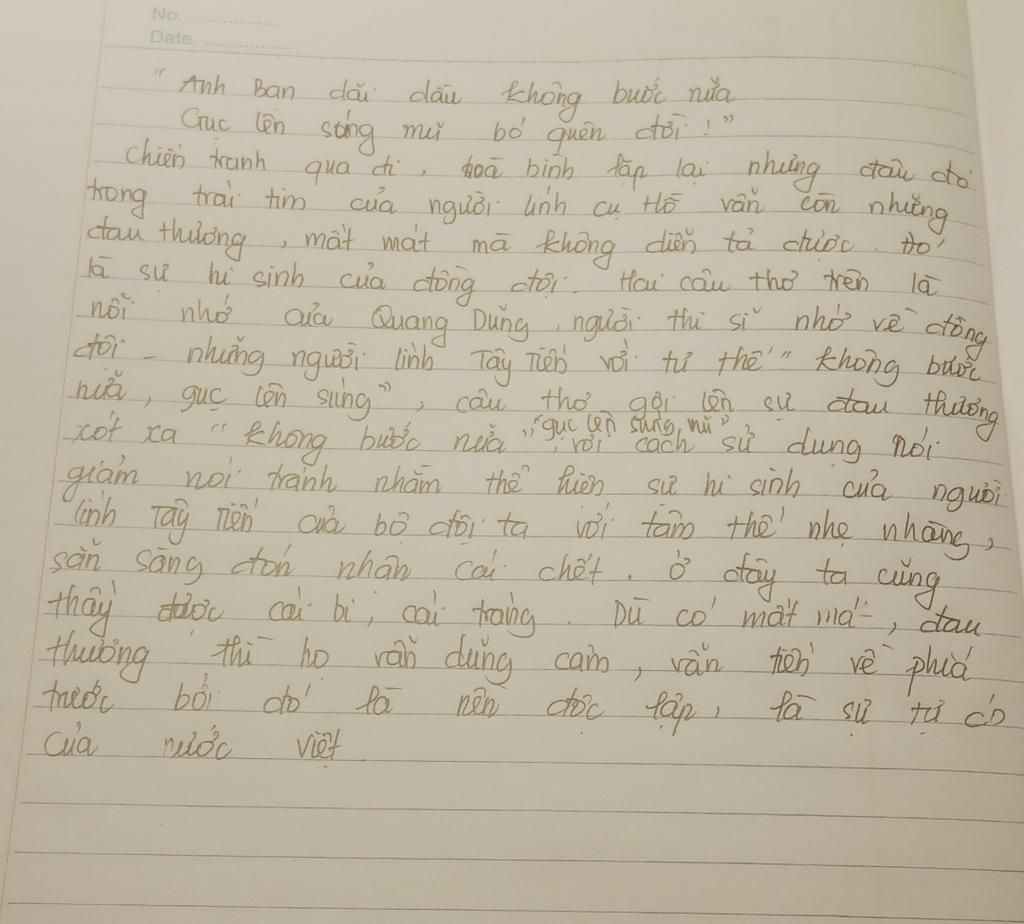 No. ................
Date ................
" Anh Ban dãi dầu không bước nữa
Gục lên súng mũ bỏ quên đời ! "
Chiến tranh qua đi, hoà bình lặp lại nhưng đâu đó
trong trái tim của người lính cụ Hồ vẫn còn những
đau thương, mất mát mà không diễn tả được. Đó
là sự hi sinh của đồng đội. Hai câu thơ trên là
nỗi nhớ của Quang Dũng, người thi sĩ nhớ về đồng
đội - những người lính Tây Tiến với tư thế " không bước
nữa, gục lên súng", câu thơ gợi lên sự đau thương
xót xa " không bước nữa ", "gục lên súng, mũ" với cách sử dụng nói
giảm nói tránh nhằm thể hiện sự hi sinh của người
lính Tây Tiến của bộ đội ta với tâm thế nhẹ nhàng,
sẵn sàng đón nhận cái chết. Ở đây ta cũng
thấy được cái bi, cái tráng. Dù có mất mát, đau
thương thì họ vẫn dũng cảm, vẫn tiến về phía
trước bởi đó là nền độc lập, là sự tự có
của nước việt